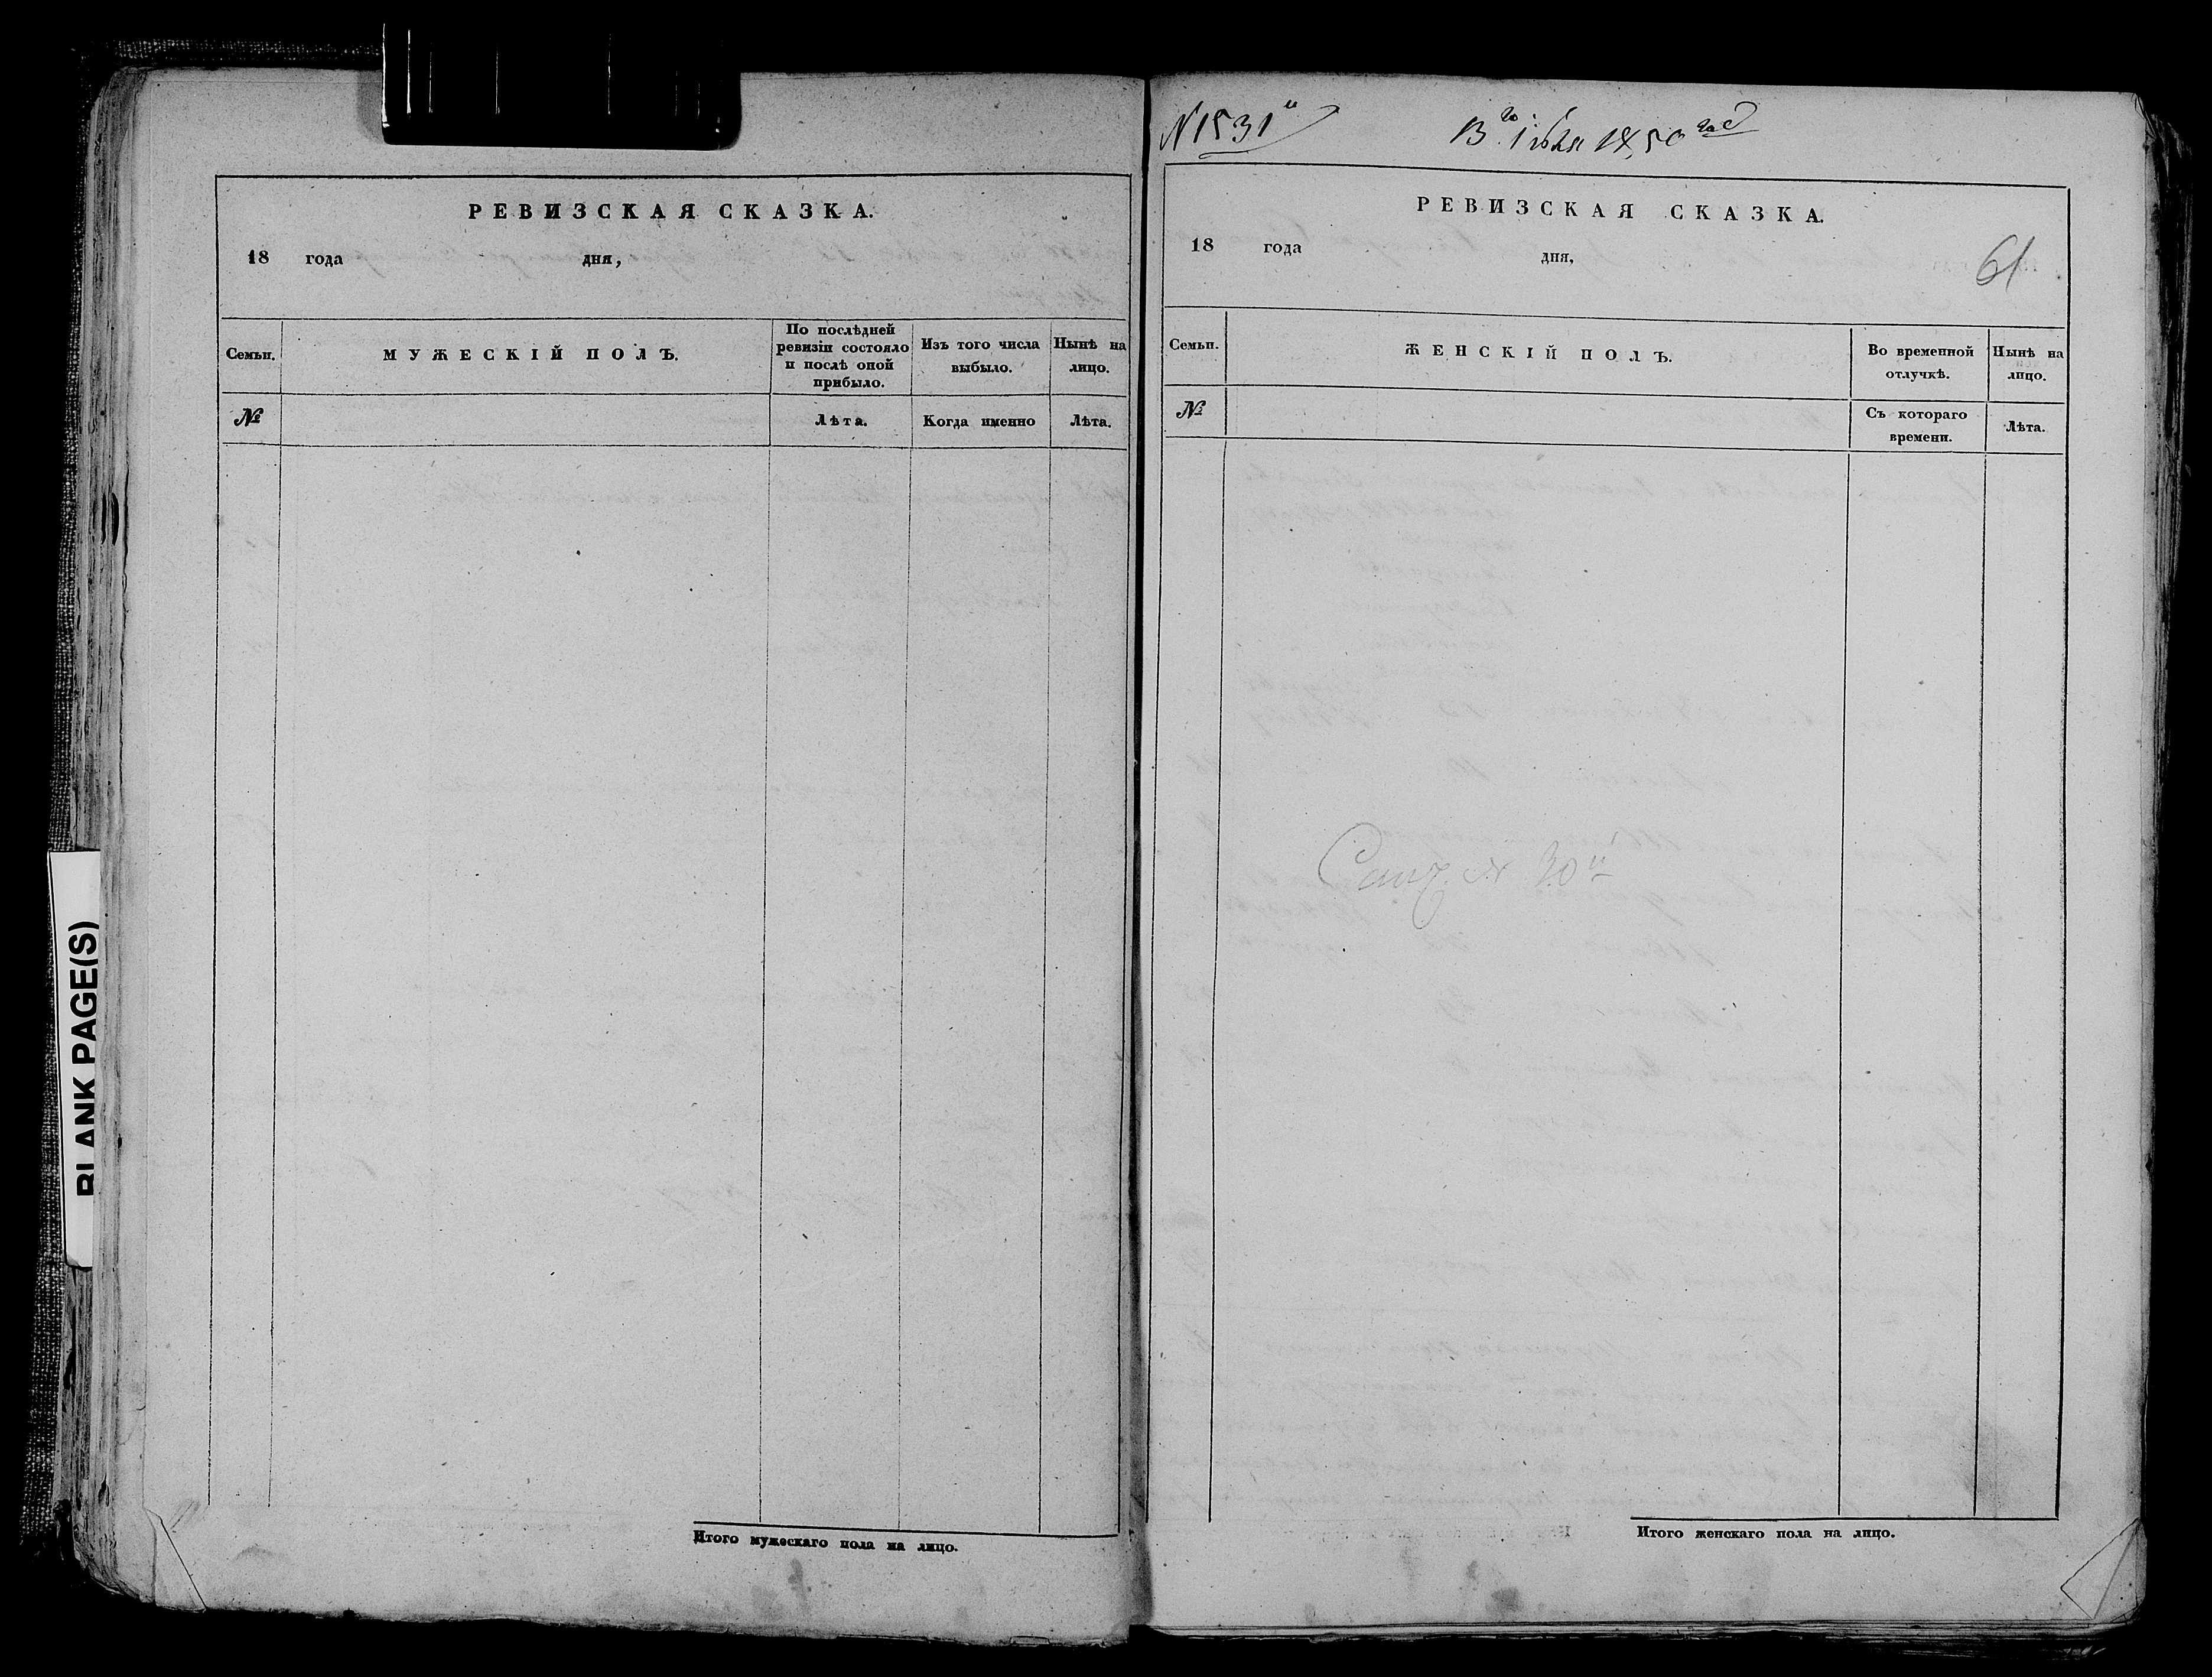 РЕВИЗСКАЯ СКАЗКА.
18 года дня,
Семьи.
МУЖЕСКІЙ ПОЛЪ.
По послѣдней
ревизіи состояло
и послѣ оной
прибыло.
Изъ того числа
выбыло.
Нынѣ на
лицо.
№
Лѣта.
Когда именно
Лѣта.
Итого мужескаго пола на лицо.
BLANK PAGE(S)
N 1531
13го 1850
РЕВИЗСКАЯ СКАЗКА.
18 года дня,
61
Семьи.
ЖЕНСКІЙ ПОЛЪ.
Во временной
отлучкѣ.
Нынѣ на
лицо.
№
Съ котораго
времени.
Лѣта.
Итого женскаго пола на лицо.